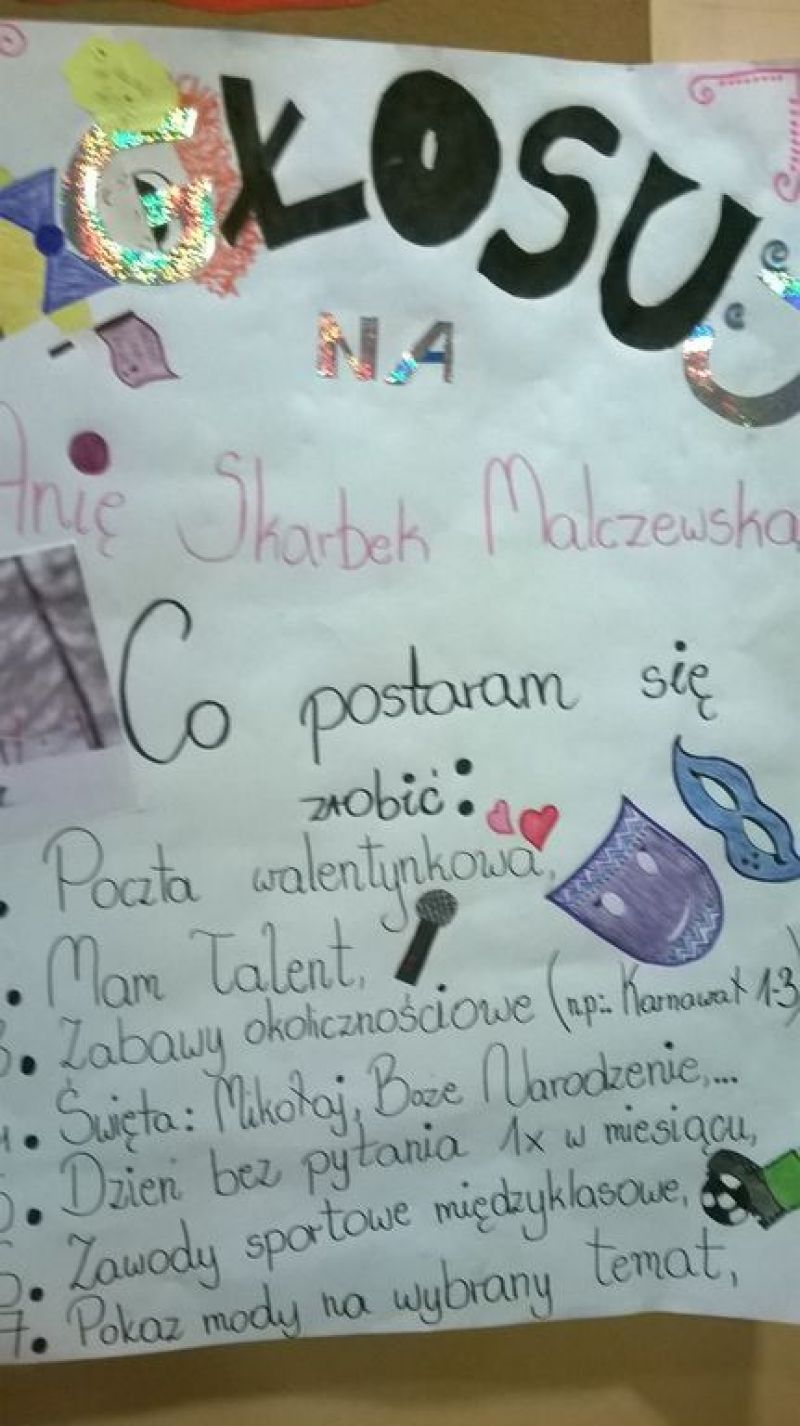 GŁOSUJ
NA
Anię Skarbek Malczewską
Co postaram się
zrobić:
Poczta walentynkowa,
. Mam Talent,
3. Zabawy okolicznościowe (np.: Karnawał 1-3)
4. Święta: Mikołaj, Boże Narodzenie,...
5. Dzień bez pytania 1x w miesiącu,
6. Zawody sportowe międzyklasowe,
7. Pokaz mody na wybrany temat,